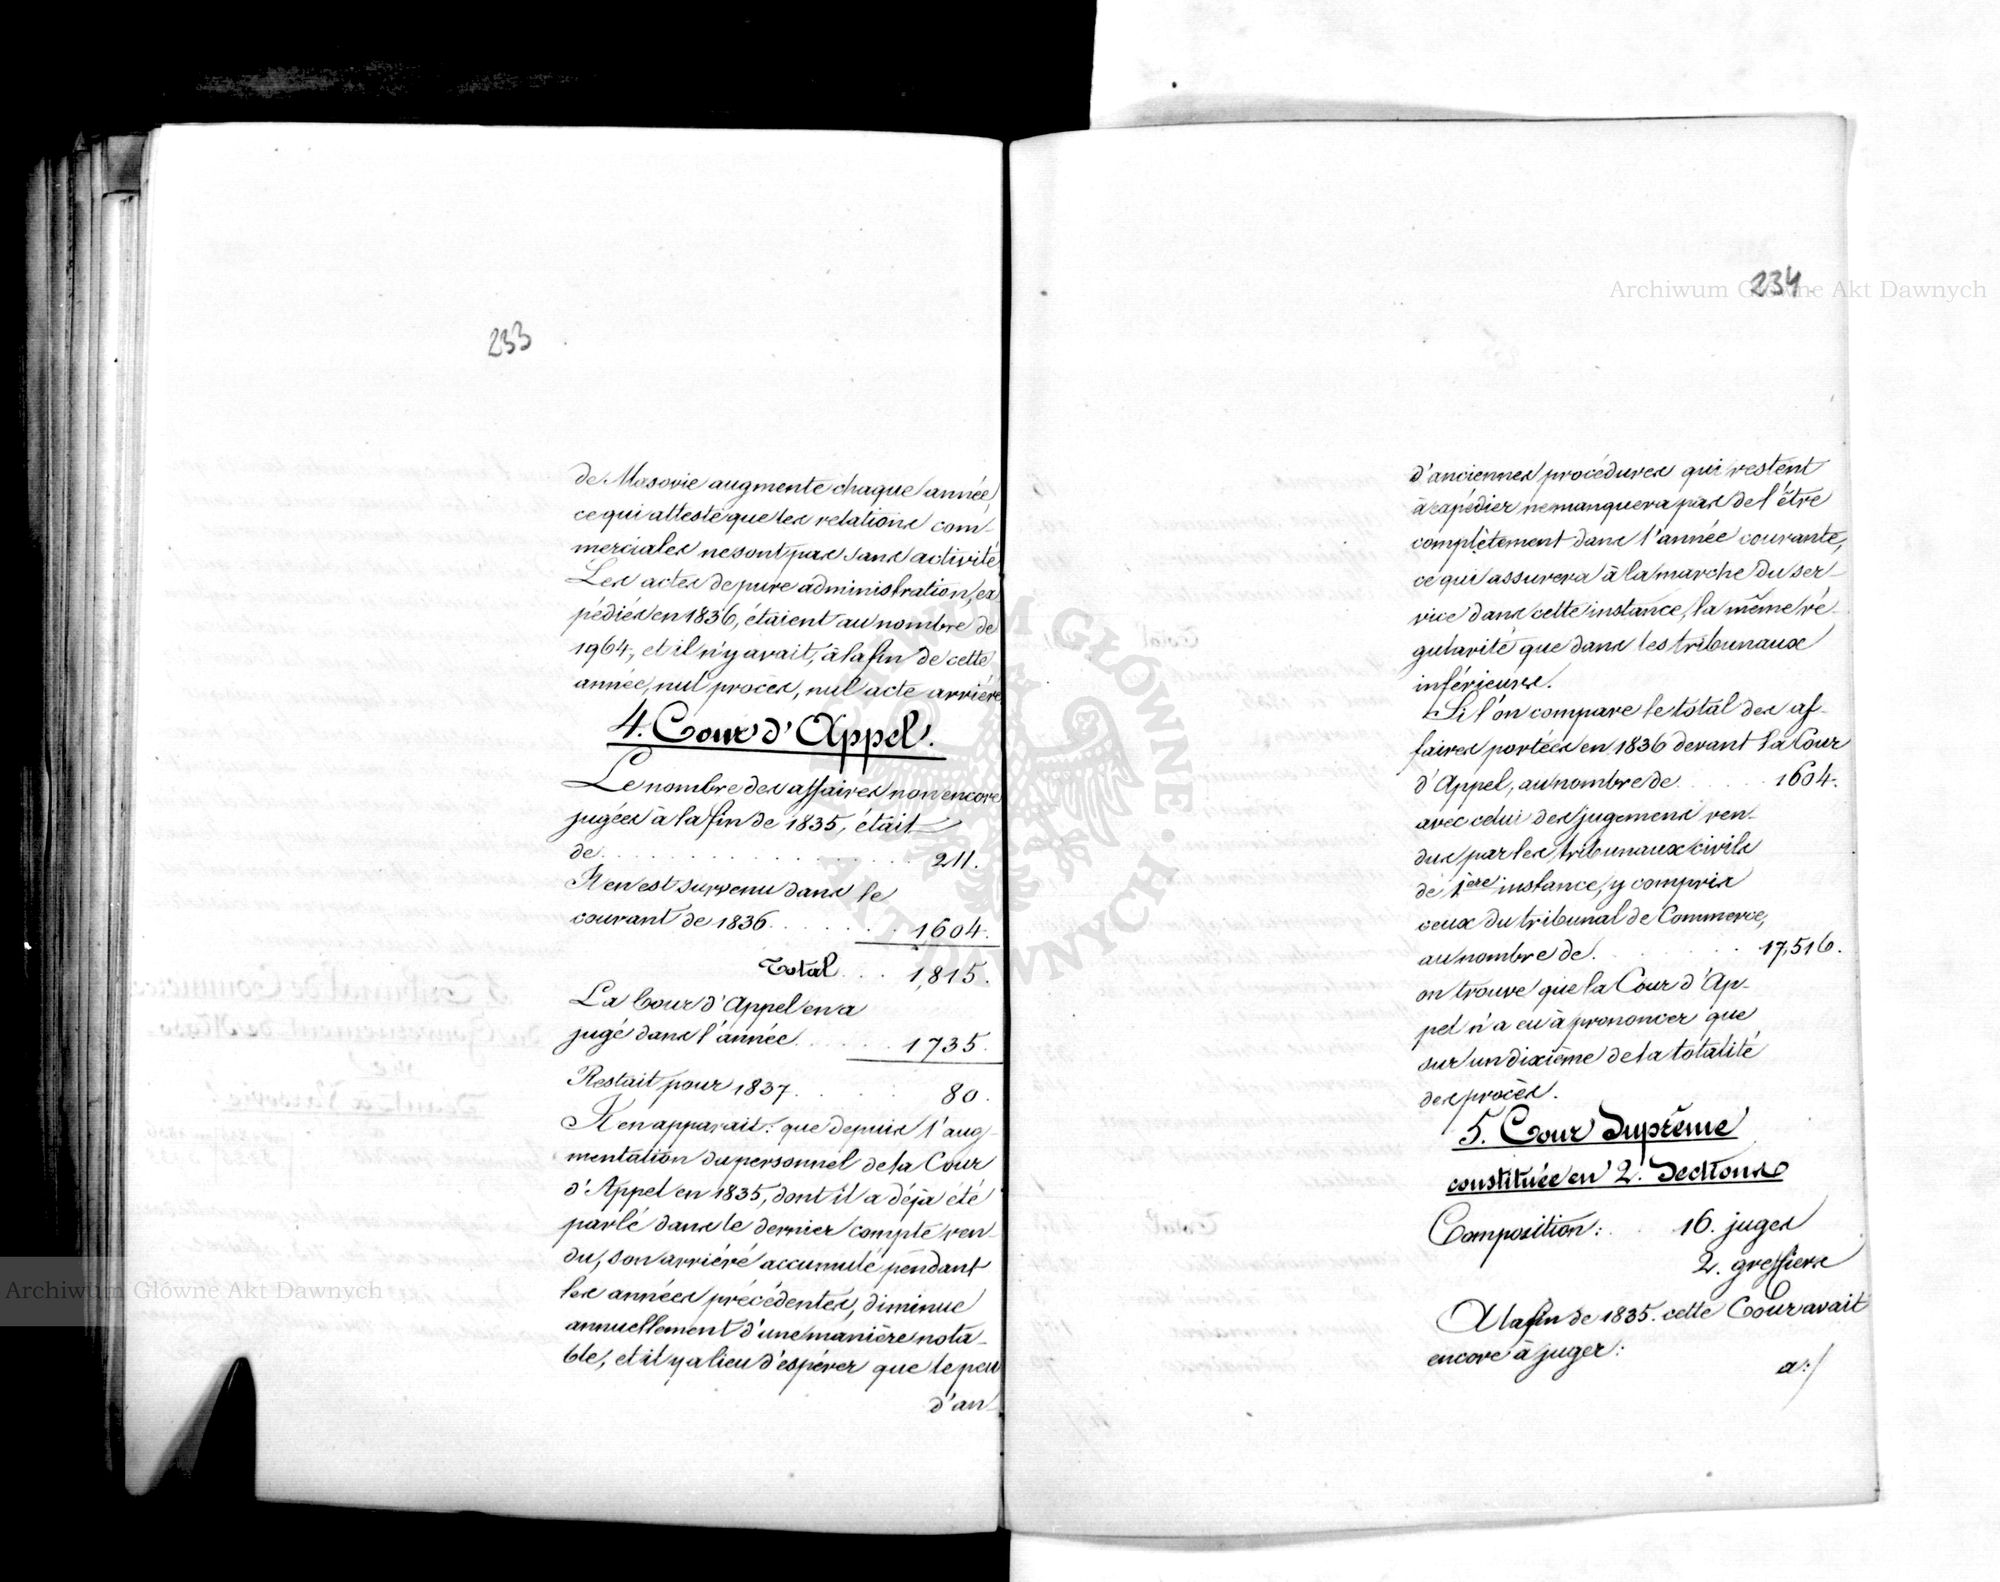 233
de Masovie augmente chaque année
ce qui atteste que les relations com-
merciales ne sont pas sans activité
Les actes de pure administration, ex
pédiés en 1836, étaient au nombre de
1964, et il n'y avait, à la fin de cette
année, nul procès, nul acte arriéré
4. Cour d'Appel.
Le nombre des affaires non encore
jugées à la fin de 1835, était
de . . . . . . . . . . 211.
Il en est survenu dans le
courant de 1836 . . . . . . 1604.
Total . . . 1,815.
La Cour d'Appel en a
jugé dans l'année . . . . . 1735.
Restait pour 1837. . . . 80.
Il en apparait: que depuis l'aug-
mentation du personnel de la Cour
d'Appel en 1835, dont il a déjà été
parlé dans le dernier compte ren-
du, son arriéré accumulé pendant
les années précédentes, diminue
annuellement d'une manière nota-
ble, et il y a lieu d'espérer que le peu
d'an-
234
d'anciennes procédures qui restent
à expédier ne manquera pas de l'être
complètement dans l'année courante,
ce qui assurera à la marche du ser-
vice dans cette instance, la même ré-
gularité que dans les tribunaux
inférieurs.
Si l'on compare le total des af-
faires portées en 1836 devant la Cour
d'Appel, au nombre de . . . . 1604.
avec celui des jugemens ren-
dus par les tribunaux civils
de 1ère instance, y compris
ceux du tribunal de Commerce,
au nombre de . . . . . 17,516.
on trouve que la Cour d'Ap-
pel n'a eu à prononcer que
sur un dixième de la totalité
des procès.
5. Cour Suprême
constituée en 2. Sections
Composition: . . 16. juges
2. greffiers
A la fin de 1835. cette Cour avait
encore à juger:
a:/
Archiwum Główne Akt Dawnych
Archiwum Główne Akt Dawnych
ARCHIWUM GŁÓWNE AKT DAWNYCH.